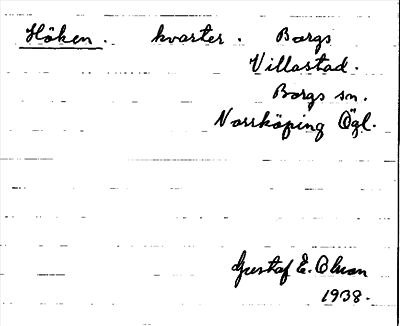 Höken. kvarter. Borgs
Villastad.
Borgs sn.
Norrköping Ögl.
Gustaf E. Olson
1938.